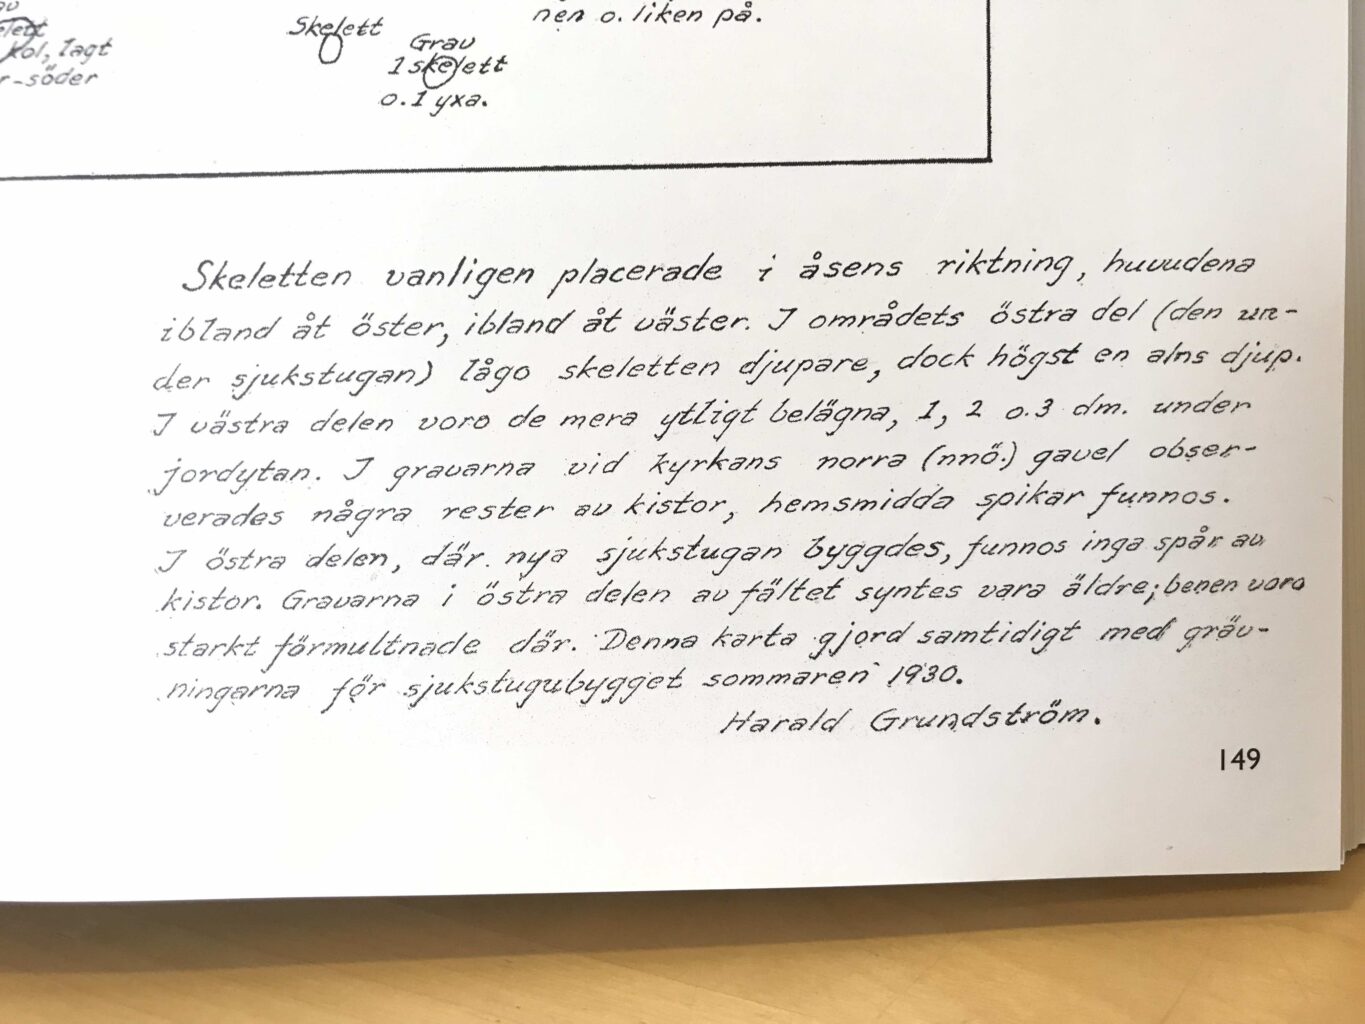 kol, lagt
r-söder
Skelett
Grav
1 skelett
o. 1 yxa.
nen o. liken på.
Skeletten vanligen placerade i åsens riktning, huvudena
ibland åt öster, ibland åt väster. I områdets östra del (den un-
der sjukstugan) lågo skeletten djupare, dock högst en alns djup.
I västra delen voro de mera ytligt belägna, 1, 2 o. 3 dm. under
jordytan. I gravarna vid kyrkans norra (nnö.) gavel obser-
verades några rester av kistor, hemsmidda spikar funnos.
I östra delen, där nya sjukstugan byggdes, funnos inga spår av
kistor. Gravarna i östra delen av fältet syntes vara äldre; benen voro
starkt förmultnade där. Denna karta gjord samtidigt med gräv-
ningarna för sjukstugubygget sommaren 1930.
Harald Grundström.
149